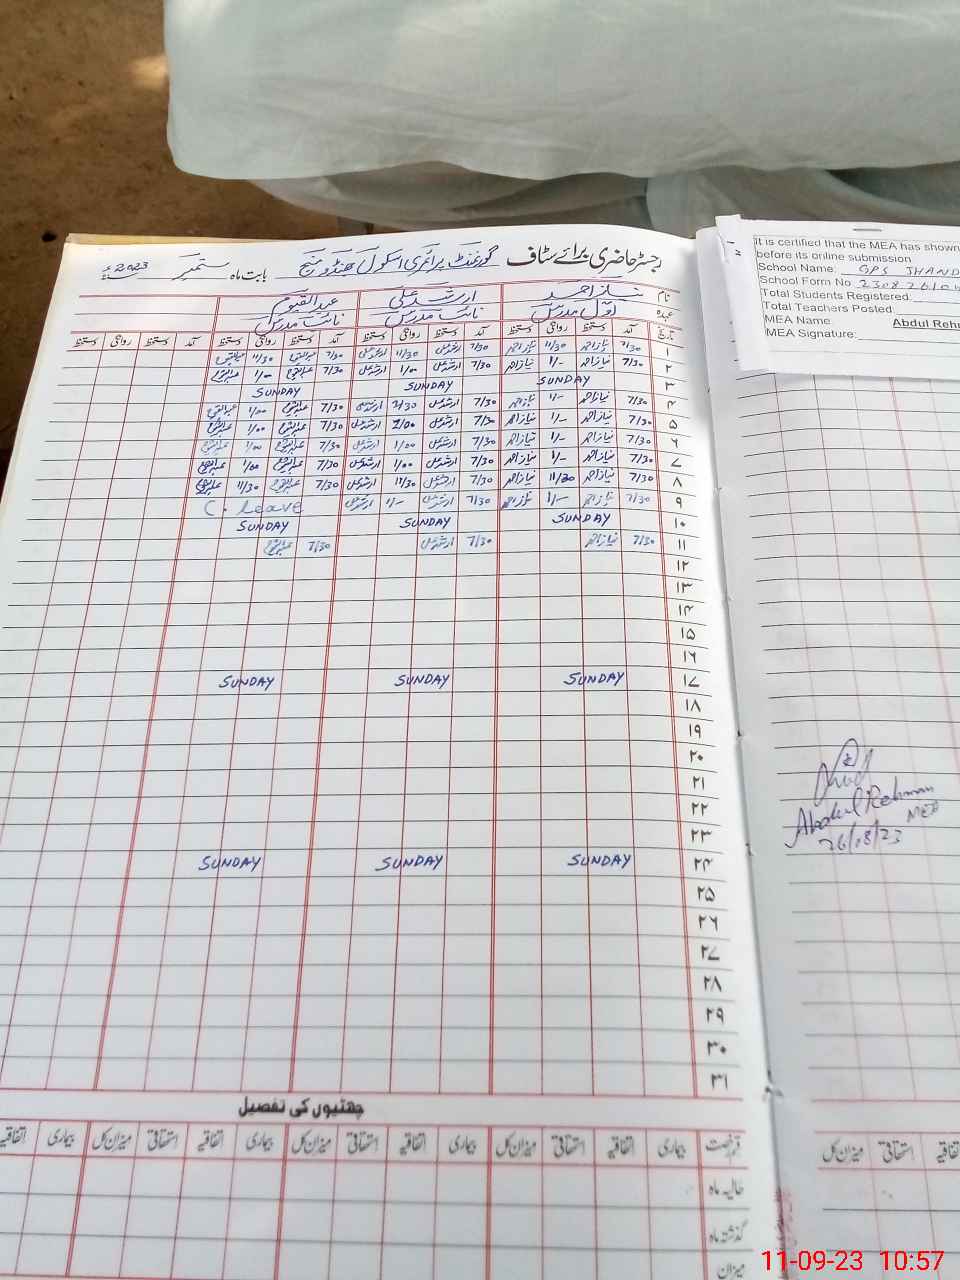 رجسٹر حاضری برائے سٹاف گورنمنٹ پرائمری اسکول جھنڈو رینج بابت ماہ ستمبر سنہ 2023ء
نام نیاز احمد ارشد علی عبدالقیوم
عہدہ اول مدرس نائب مدرس نائب مدرس
تاریخ آمد دستخط روانگی دستخط آمد دستخط روانگی دستخط آمد دستخط روانگی دستخط آمد دستخط روانگی دستخط
۱ 7/30 نیاز احمد 11/30 نیاز احمد 7/30 ارشد علی 11/30 ارشد علی 7/30 عبدالقیوم 11/30 عبدالقیوم
۲ 7/30 نیاز احمد 1/- نیاز احمد 7/30 ارشد علی 1/00 ارشد علی 7/30 عبدالقیوم 1/00 عبدالقیوم
۳ SUNDAY SUNDAY SUNDAY
۴ 7/30 نیاز احمد 1/- نیاز احمد 7/30 ارشد علی ارشد علی 7/30 عبدالقیوم 1/00 عبدالقیوم
۵ 7/30 نیاز احمد 1/- نیاز احمد 7/30 ارشد علی ارشد علی 7/30 عبدالقیوم 1/00 عبدالقیوم
۶ 7/30 نیاز احمد 1/- نیاز احمد 7/30 ارشد علی 1/00 ارشد علی 7/30 عبدالقیوم 1/00 عبدالقیوم
۷ 7/30 نیاز احمد 1/- نیاز احمد 7/30 ارشد علی 1/00 ارشد علی 7/30 عبدالقیوم 1/00 عبدالقیوم
۸ 7/30 نیاز احمد 11/30 نیاز احمد 7/30 ارشد علی 11/30 ارشد علی 7/30 عبدالقیوم 11/30 عبدالقیوم
۹ 7/30 نیاز احمد 1/- نیاز احمد 7/30 ارشد علی 1/- ارشد علی C. Leave
۱۰ SUNDAY SUNDAY SUNDAY
۱۱ 7/30 نیاز احمد 7/30 ارشد علی 7/30 عبدالقیوم
۱۲
۱۳
۱۴
۱۵
۱۶
۱۷ SUNDAY SUNDAY SUNDAY
۱۸
۱۹
۲۰
۲۱
۲۲
۲۳
۲۴ SUNDAY SUNDAY SUNDAY
۲۵
۲۶
۲۷
۲۸
۲۹
۳۰
۳۱
چھٹیوں کی تفصیل
قسم رخصت بیماری اتفاقیہ استحقاقی میزان کل بیماری اتفاقیہ استحقاقی میزان کل بیماری اتفاقیہ استحقاقی میزان کل بیماری اتفاقیہ
حالیہ ماہ
گذشتہ ماہ
میزان
It is certified that the MEA has shown
before its online submission
School Name: GPS JHAND
School Form No 23082610
Total Students Registered:
Total Teachers Posted:
MEA Name Abdul Reh
MEA Signature:
Abdul Rehman
MEA
26/08/23
اتفاقیہ استحقاقی میزان کل
11-09-23 10:57